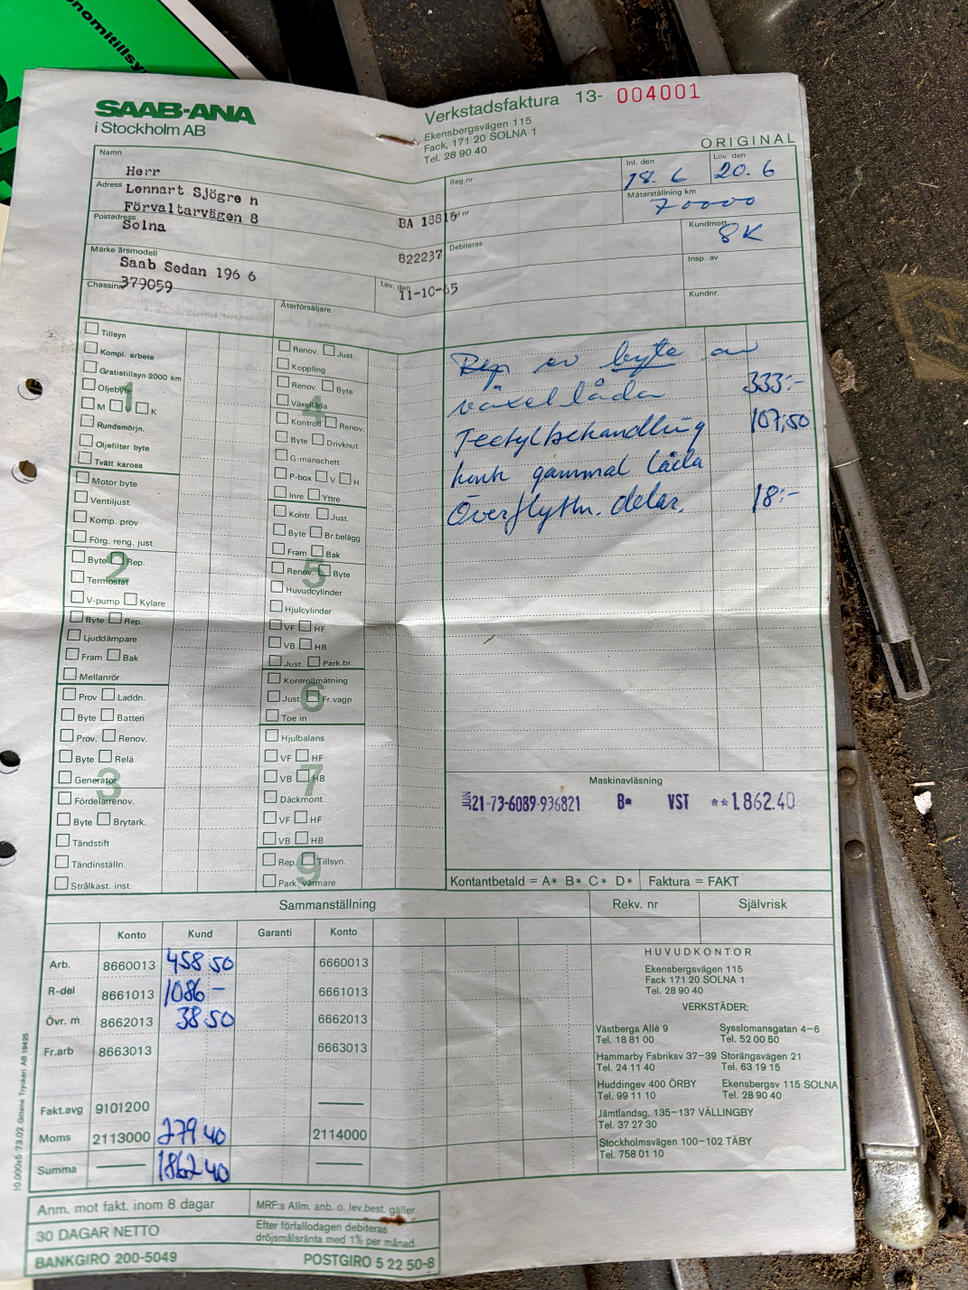 onomitillsy
SAAB-ANA
i Stockholm AB
Verkstadsfaktura 13- 004001
Ekensbergsvägen 115
Fack, 171 20 SOLNA 1
Tel. 28 90 40
ORIGINAL
Namn
Herr
Adress Lennart Sjögre n
Förvaltarvägen 8
Postadress Solna
BA 1881
822237
Märke årsmodell
Saab Sedan 196 6
Chassinr 379059
Lev. den
11-10-65
Återförsäljare
Reg.nr
Inl. den
18. 6
Lov. den
20. 6
Mätarställning km
70000
Debiteras
Kundmott
8K
Insp. av
Kundnr.
Tillsyn
Kompl. arbete
Gratistillsyn 2000 km
Oljebyte
1
M K
Rundsmörjn.
Oljefilter byte
Tvätt kaross
Motor byte
Ventiljust.
Komp. prov
Förg. reng. just.
2
Byte Rep.
Termostat
V-pump Kylare
Byte Rep.
Ljuddämpare
Fram Bak
Mellanrör
Prov Laddn.
Byte Batteri
Prov. Renov.
Byte Relä
Generator
3
Fördelarrenov.
Byte Brytark.
Tändstift
Tändinställn.
Strålkast. inst.
Renov. Just.
Koppling
Renov. Byte
Växellåda
4
Kontroll Renov.
Byte Drivknut
G-manschett
P-box V H
Inre Yttre
Kontr. Just.
Byte Br.belägg
Fram Bak
5
Renov. Byte
Huvudcylinder
Hjulcylinder
VF HF
VB HB
Just. Park.br.
Kontrollmätning
6
Just. Fr.vagn
Toe in
Hjulbalans
VF HF
7
VB HB
Däckmont.
VF HF
VB HB
9
Rep. Tillsyn.
Park. värmare
Rep ev byte av
växellåda 333:-
Tectylbehandling 107,50
gammal låda
Överflyttn. delar. 18:-
Maskinavläsning
21-73-6089-936821 B* VST **1.862.40
Kontantbetald = A* B* C* D* Faktura = FAKT
Sammanställning
Rekv. nr
Självrisk
Konto Kund Garanti Konto
Arb. 8660013 458 50 6660013
R-del 8661013 1086 - 6661013
Övr. m 8662013 38 50 6662013
Fr.arb 8663013 6663013
Fakt.avg 9101200
Moms 2113000 279 40 2114000
Summa 1862 40
HUVUDKONTOR
Ekensbergsvägen 115
Fack 171 20 SOLNA 1
Tel. 28 90 40
VERKSTÄDER:
Västberga Allé 9
Tel. 18 81 00
Sysslomansgatan 4-6
Tel. 52 00 50
Hammarby Fabriksv 37-39
Tel. 24 11 40
Storängsvägen 21
Tel. 63 19 15
Huddingev 400 ÖRBY
Tel. 99 11 10
Ekensbergsv 115 SOLNA
Tel. 28 90 40
Jämtlandsg. 135-137 VÄLLINGBY
Tel. 37 27 30
Stockholmsvägen 100-102 TÄBY
Tel. 758 01 10
10.000x5 73.02 Götene Tryckeri AB 19425
Anm. mot fakt. inom 8 dagar
MRF:s Allm. anb. o. lev.best. gäller.
30 DAGAR NETTO
Efter förfallodagen debiteras
dröjsmålsränta med 1% per månad.
BANKGIRO 200-5049
POSTGIRO 5 22 50-8